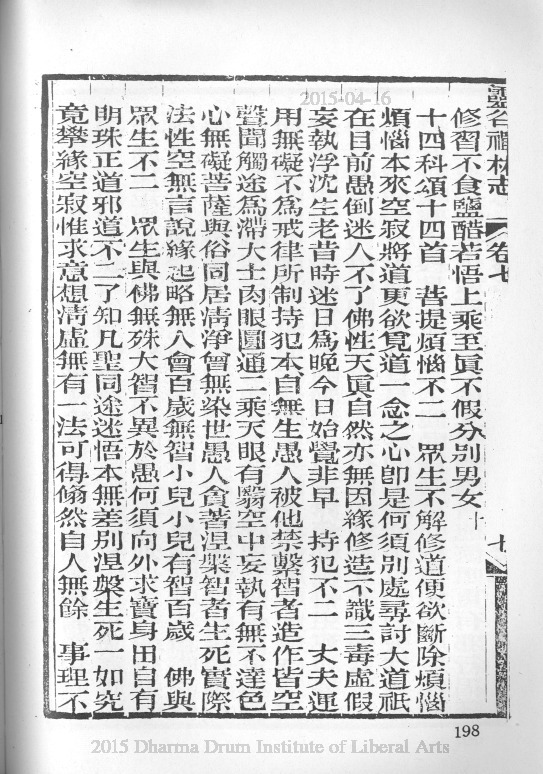 靈谷禪林志 卷七 七
修習不食鹽醋若悟上乘至眞不假分別男女
十四科頌十四首 菩提煩惱不二 眾生不解修道便欲斷除煩惱
煩惱本來空寂將道更欲覓道一念之心卽是何須別處尋討大道祇
在目前愚倒迷人不了佛性天眞自然亦無因緣修造不識三毒虛假
妄執浮沈生老昔時迷日爲晚今日始覺非早 持犯不二 丈夫運
用無礙不爲戒律所制持犯本自無生愚人被他禁繫智者造作皆空
聲聞觸途爲滯大士肉眼圓通二乘天眼有翳空中妄執有無不達色
心無礙菩薩與俗同居清淨曾無染世愚人貪著涅槃智者生死實際
法性空無言說緣起略無人會百歲無智小兒小兒有智百歲 佛與
眾生不二 眾生與佛無殊大智不異於愚何須向外求寶身田自有
明珠正道邪道不二了知凡聖同途迷悟本無差別涅槃生死一如究
竟攀緣空寂惟求意想清虛無有一法可得翛然自入無餘 事理不
198
2015-04-16
2015 Dharma Drum Institute of Liberal Arts